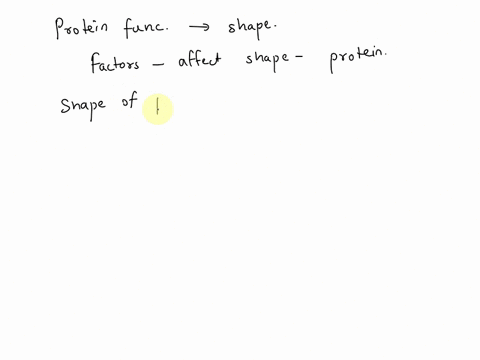 Protein func. → shape.
factors - affect shape - protein.
Shape of